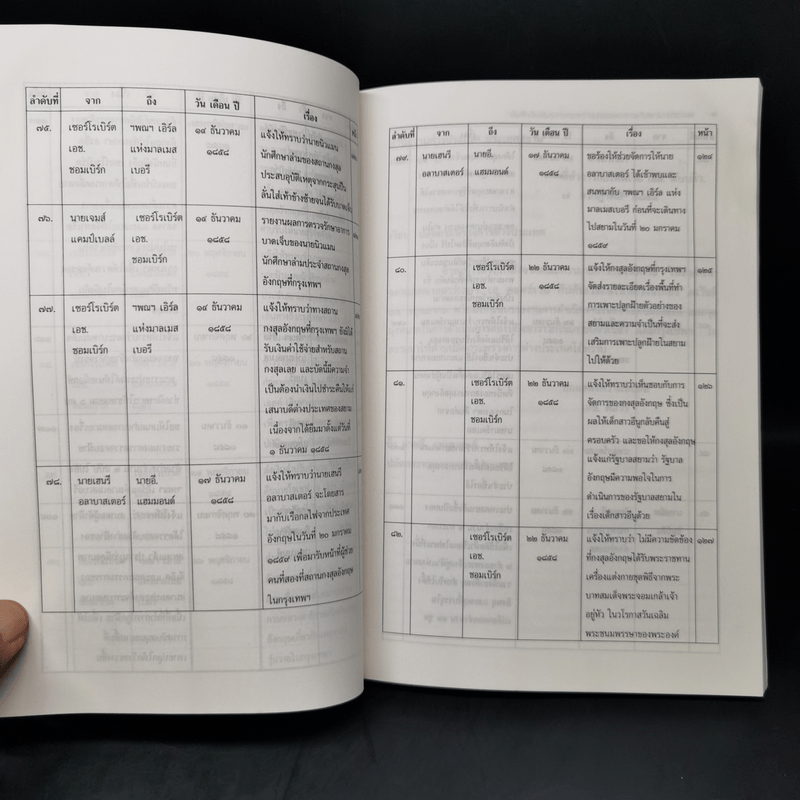 ลำดับที่ จาก ถึง วัน เดือน ปี เรื่อง
๗๕. เซอร์โรเบิร์ต ฯพณฯ เอิร์ล ๑๔ ธันวาคม แจ้งให้ทราบว่านายนิวแมน
เอช. แห่งมาลเมส ๑๘๕๘ นักศึกษาล่ามของสถานกงสุล
ชอมเบิร์ก เบอรี ประสบอุบัติเหตุจากกระสุนปืน
ลั่นใส่เท้าข้างซ้ายจนได้รับบาดเจ็บ
๗๖. นายเจมส์ เซอร์โรเบิร์ต ๑๔ ธันวาคม รายงานผลการตรวจรักษาอาการ
แคมป์เบลล์ เอช. ๑๘๕๘ บาดเจ็บของนายนิวแมน
ชอมเบิร์ก นักศึกษาล่ามประจำสถานกงสุล
อังกฤษที่กรุงเทพฯ
๗๗. เซอร์โรเบิร์ต ฯพณฯ เอิร์ล ๑๔ ธันวาคม แจ้งให้ทราบว่าทางสถาน
เอช. แห่งมาลเมส ๑๘๕๘ กงสุลอังกฤษที่กรุงเทพฯ ยังมิได้
ชอมเบิร์ก เบอรี รับเงินค่าใช้จ่ายสำหรับสถาน
กงสุลเลย และบัดนี้มีความจำ
เป็นต้องนำเงินไปชำระคืนให้แก่
เสนาบดีต่างประเทศของสยาม
เนื่องจากได้ยืมมาตั้งแต่วันที่
๑ ธันวาคม ๑๘๕๘
๗๘. นายเฮนรี นายอี. ๑๗ ธันวาคม แจ้งให้ทราบว่านายเฮนรี
อลาบาสเตอร์ แฮมมอนด์ ๑๘๕๘ อลาบาสเตอร์ จะโดยสาร
มากับเรือกลไฟจากประเทศ
อังกฤษในวันที่ ๒๐ มกราคม
๑๘๕๙ เพื่อมารับหน้าที่ผู้ช่วย
คนที่สองที่สถานกงสุลอังกฤษ
ในกรุงเทพฯ
ลำดับที่ จาก ถึง วัน เดือน ปี เรื่อง หน้า
๗๙. นายเฮนรี นายอี. ๑๗ ธันวาคม ขอร้องให้ช่วยจัดการให้นาย ๑๒๔
อลาบาสเตอร์ แฮมมอนด์ ๑๘๕๘ อลาบาสเตอร์ ได้เข้าพบและ
สนทนากับ ฯพณฯ เอิร์ล แห่ง
มาลเมสเบอรี ก่อนที่จะเดินทาง
ไปสยามในวันที่ ๒๐ มกราคม
๑๘๕๙
๘๐. เซอร์โรเบิร์ต ๒๒ ธันวาคม แจ้งให้กงสุลอังกฤษที่กรุงเทพฯ ๑๒๕
เอช. ๑๘๕๘ จัดส่งรายละเอียดเรื่องพื้นที่ทำ
ชอมเบิร์ก การเพาะปลูกฝ้ายตัวอย่างของ
สยามและความจำเป็นที่จะส่ง
เสริมการเพาะปลูกฝ้ายในสยาม
ไปให้ด้วย
๘๑. เซอร์โรเบิร์ต ๒๒ ธันวาคม แจ้งให้ทราบว่าเห็นชอบกับการ ๑๒๖
เอช. ๑๘๕๘ จัดการของกงสุลอังกฤษ ซึ่งเป็น
ชอมเบิร์ก ผลให้เด็กสาวอีนูกลับคืนสู่
ครอบครัว และขอให้กงสุลอังกฤษ
แจ้งแก่รัฐบาลสยามว่า รัฐบาล
อังกฤษมีความพอใจในการ
ดำเนินการของรัฐบาลสยามใน
เรื่องเด็กสาวอีนูด้วย
๘๒. เซอร์โรเบิร์ต ๒๒ ธันวาคม แจ้งให้ทราบว่า ไม่มีความขัดข้อง ๑๒๗
เอช. ๑๘๕๘ ที่กงสุลอังกฤษได้รับพระราชทาน
ชอมเบิร์ก เครื่องแต่งกายชุดพิธีจากพระ
บาทสมเด็จพระจอมเกล้าเจ้า
อยู่หัว ในวโรกาสวันเฉลิม
พระชนมพรรษาของพระองค์